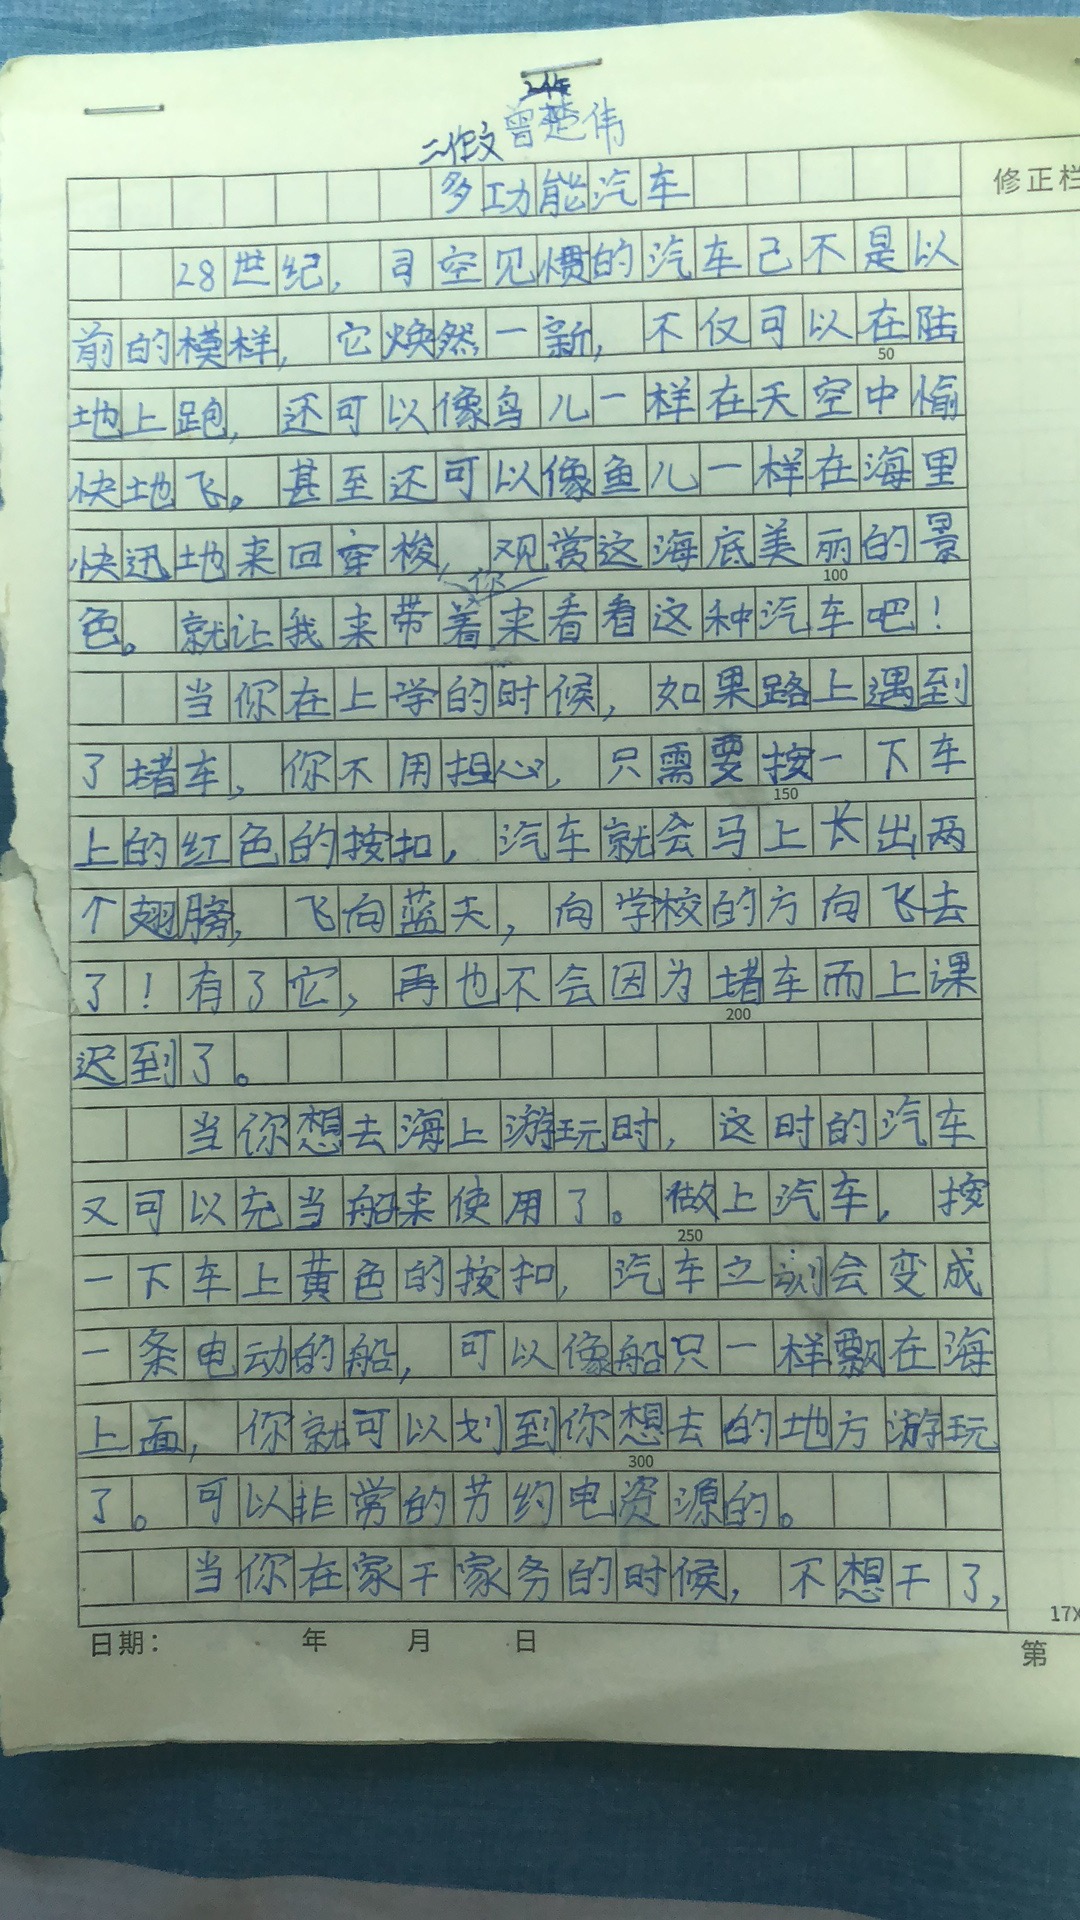 二作文 曾楚伟
多功能汽车
修正栏
28世纪，司空见惯的汽车已不是以
前的模样，它焕然一新，不仅可以在陆
50
地上跑，还可以像鸟儿一样在天空中愉
快地飞。甚至还可以像鱼儿一样在海里
快迅地来回穿梭，观赏这海底美丽的景
100
你
色。就让我来带着来看看这种汽车吧！
当你在上学的时候，如果路上遇到
了堵车，你不用担心，只需要按一下车
150
上的红色的按扣，汽车就会马上长出两
个翅膀，飞向蓝天，向学校的方向飞去
了！有了它，再也不会因为堵车而上课
200
迟到了。
当你想去海上游玩时，这时的汽车
又可以充当船来使用了。做上汽车，按
250
一下车上黄色的按扣，汽车立刻会变成
一条电动的船，可以像船只一样飘在海
上面，你就可以划到你想去的地方游玩
300
了。可以非常的节约电资源的。
当你在家干家务的时候，不想干了，
17X
日期： 年 月 日
第